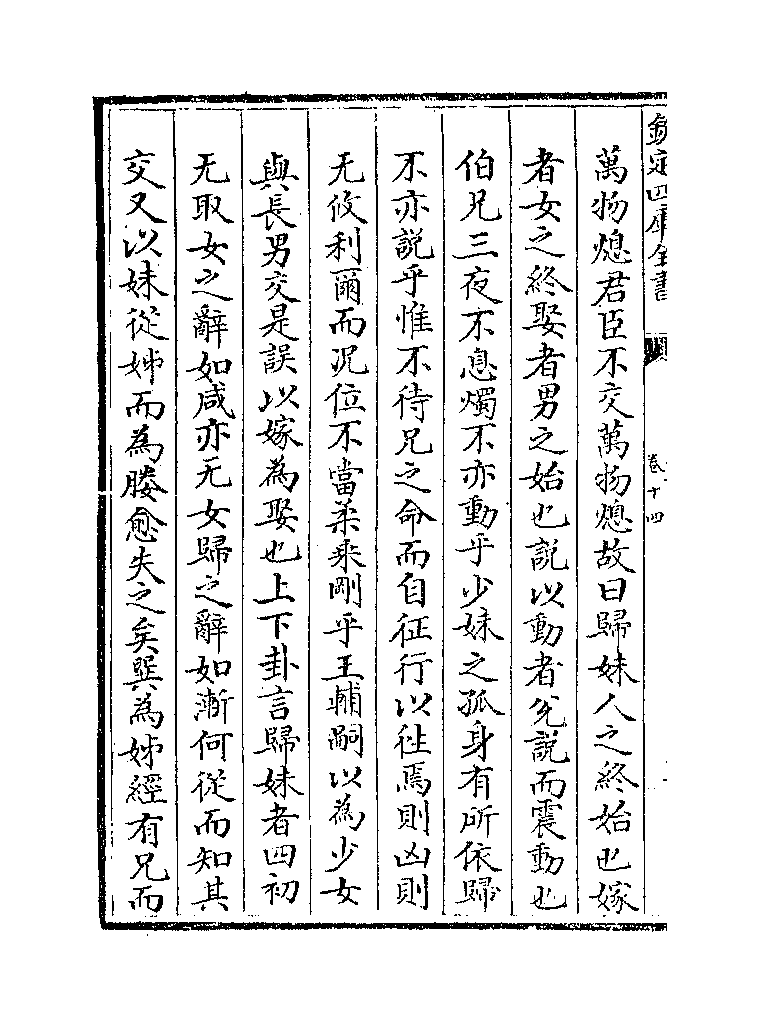 欽定四庫全書
卷十四
萬物熄君臣不交萬物熄故曰歸妹人之終始也嫁
者女之終娶者男之始也説以動者兊説而震動也
伯兄三夜不息燭不亦動乎少妹之孤身有所依歸
不亦説乎惟不待兄之命而自征行以徃焉則凶則
无攸利爾而況位不當柔乘剛乎王輔嗣以為少女
與長男交是誤以嫁為娶也上下卦言歸妹者四初
无取女之辭如咸亦无女歸之辭如漸何從而知其
交又以妹從姊而為媵愈失之矣巽為姊經有兄而